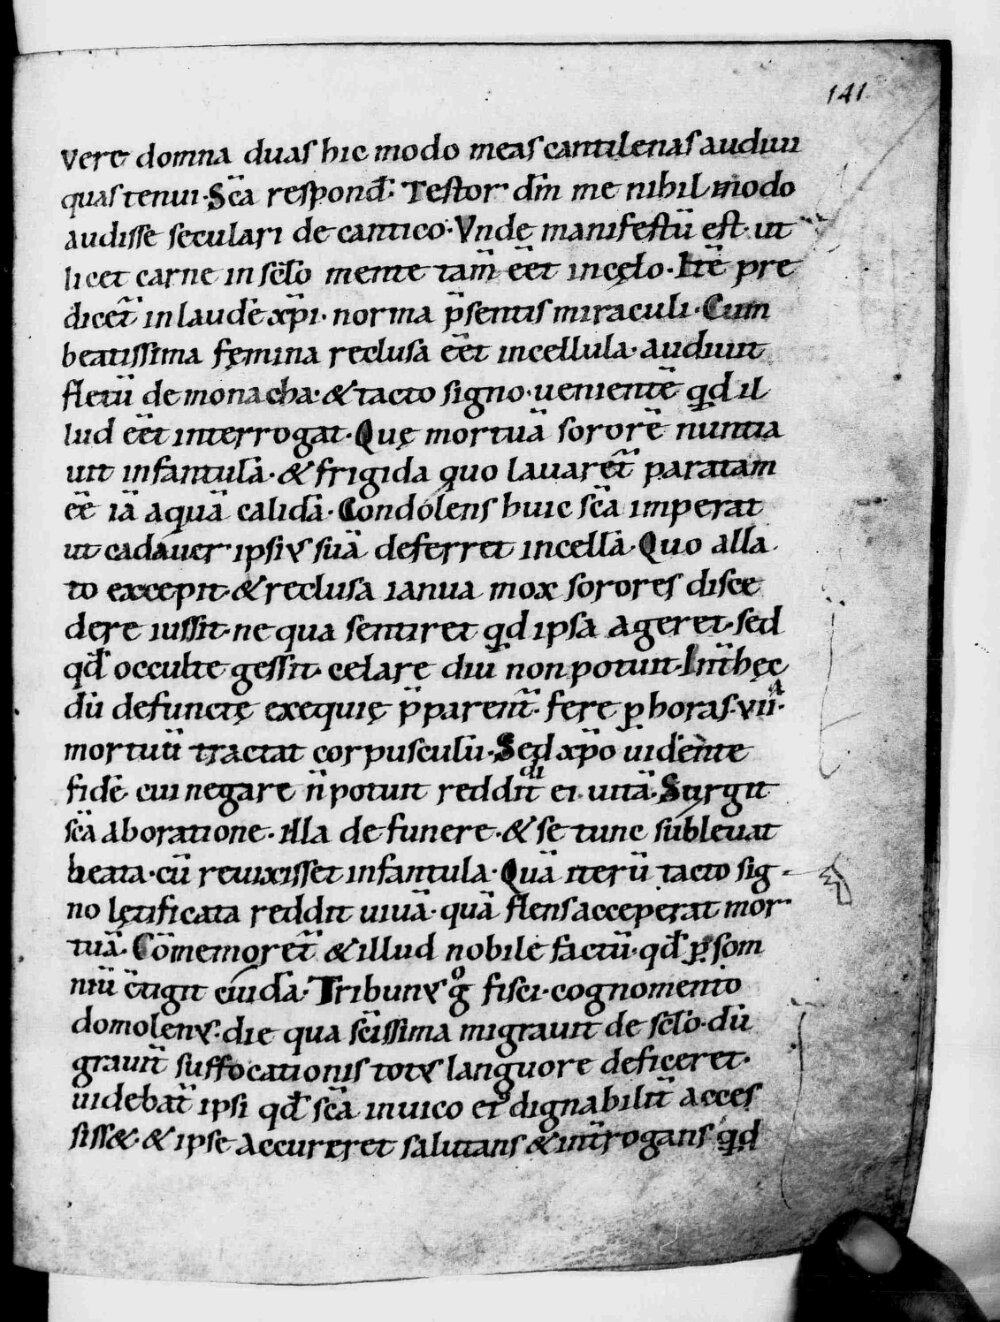 141
Vere domna duas hic modo meas cantilenas audiui
quas tenui· Sc̄a respond̄: Testor dm̄ me nihil modo
audisse seculari de cantico· Vnde manifestū est· ut
licet carne in sc̄lo mente tam̄ eēt in cęlo· Itē pre
dicet̄ in laudē xp̄i· norma p̄sentis miraculi· Cum
beatissima fęmina reclusa eēt in cellula· audiuit
fletū de monacha· & tacto signo· uenientē qd̄ il
lud eēt interrogat· Quę mortuā sororē nuntia
uit infantulā· & frigida quo lauaret̄ paratam
eē iā aquā calidā· Condolens huic sc̄a imperat
ut cadauer ipsiꝰ suā deferret in cellā· Quo alla
to excepit· & reclusa ianua mox sorores disce
dere iussit· ne qua sentiret qd̄ ipsa ageret· sed
qd̄ occulte gessit· celare diu non potuit· Int̄ hęc
dū defunctę exequię p̄parent̄· fere ꝑ horas· vii·
mortuū tractat corpusculū· Sed xp̄o uidente
fidē cui negare n̄ potuit reddidit ei uitā· Surgit
sc̄a ab oratione· illa de funere· & se tunc subleuat
beata· cū reuixisset infantula· Quā iterū tacto sig
no lętificata reddit uiuā· quā flens acceperat mor
tuā· Cōmemoret̄ & illud nobile factū· qd̄ ꝑ som
niū c̄tigit eiꝰdā· Tribunꝰ gͦ fisci· cognomento
domolenꝰ· die qua sc̄issima migrauit de sc̄lo· dū
grauit̄ suffocationis totꝰ languore deficeret·
uidebat̄ ipsi qd̄ sc̄a in uico eiꝰ dignabilit̄ acces
siss&· & ipse accurreret salutans & int̄rogans qd̄